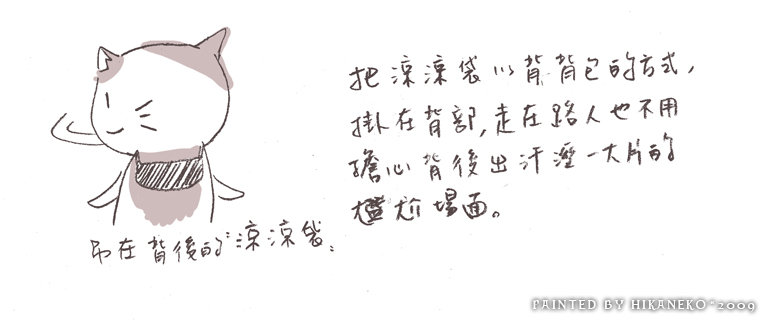 把涼涼袋以背背包的方式，
掛在背部，走在路人也不用
擔心背後出汗溼一大片的
尷尬場面。
吊在背後的涼涼袋。
PAINTED BY HIKANEKO*2009